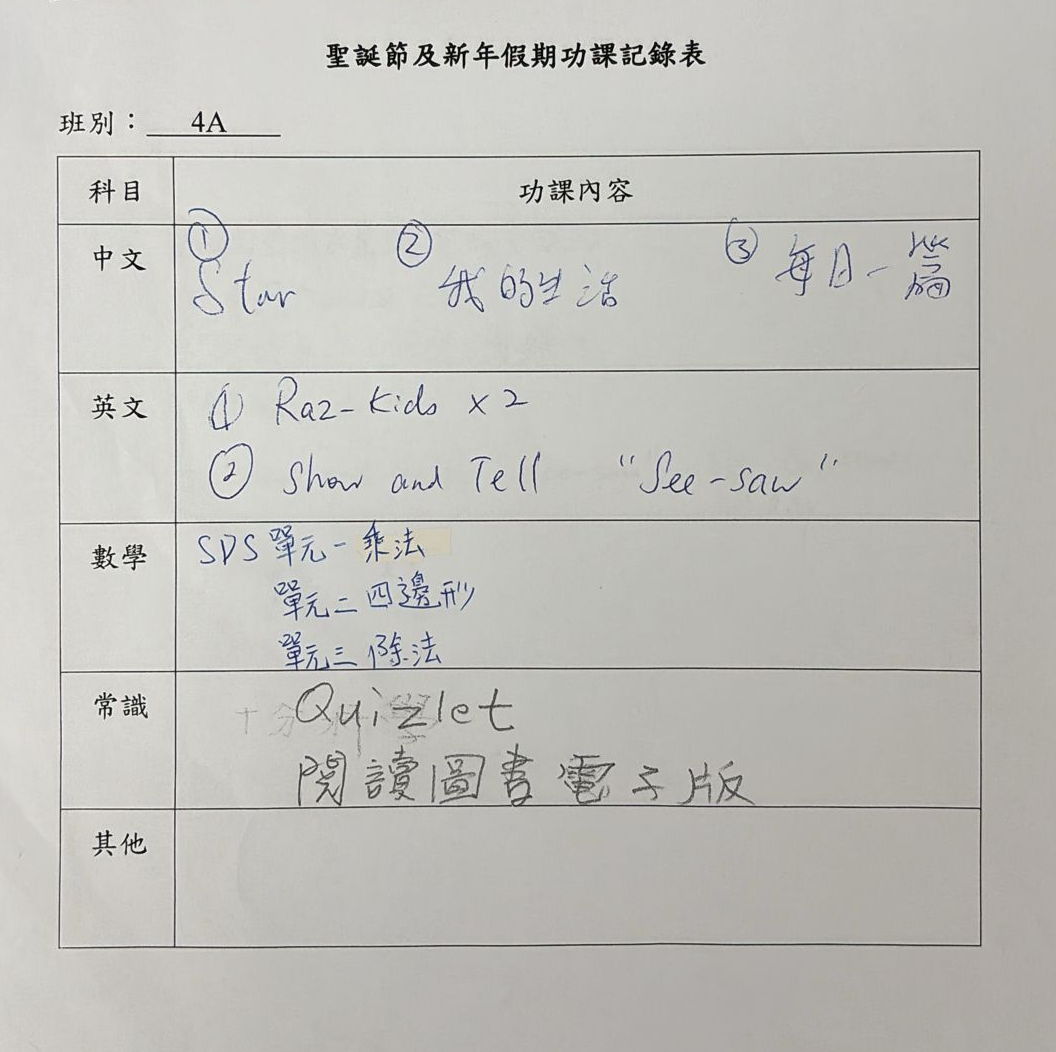 聖誕節及新年假期功課記錄表
班別： 4A
科目 功課內容
中文 ① Star ② 我的生活 ③ 每日一篇
英文 ① Raz-Kids x 2
② Show and Tell "See-saw"
數學 SPS 單元一 乘法
單元二 四邊形
單元三 除法
常識 Quizlet
閱讀圖書電子版
其他